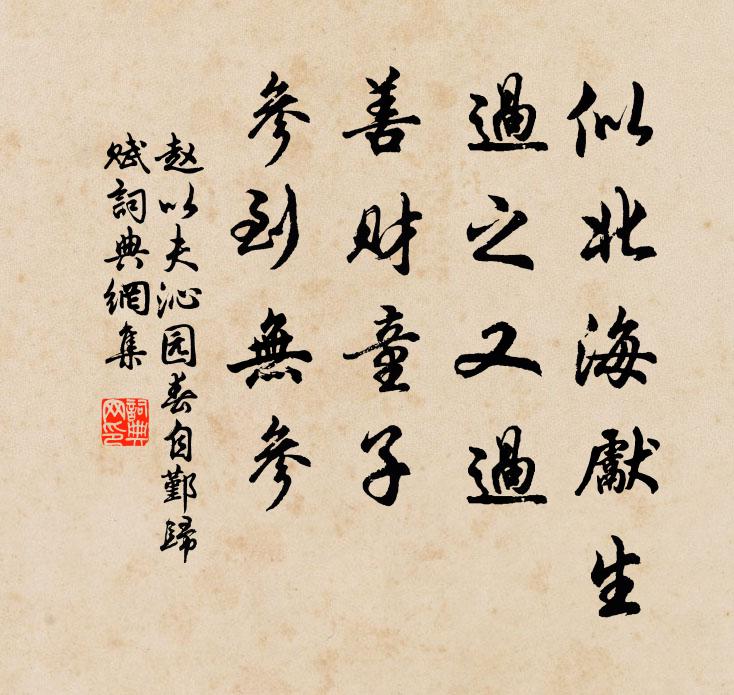 似北海獻生
過之又過
善財童子
參到無參
赵以夫沁园春自鄞歸
赋詞典網集
詞典
网印